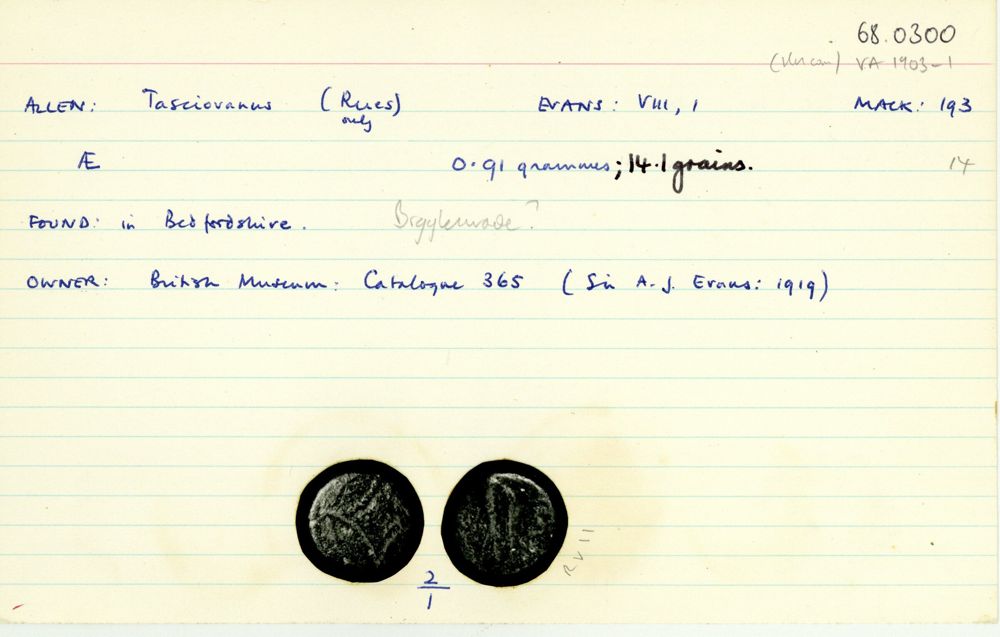 68.0300
VA 1903-1
ALLEN: Tasciovanus (Rues) only EVANS: VIII, 1 MACK: 193
Æ 0.91 grammes; 14.1 grains. 14
FOUND: in Bedfordshire.
OWNER: British Museum: Catalogue 365 (Sir A. J. Evans: 1919)
RVII
2
1